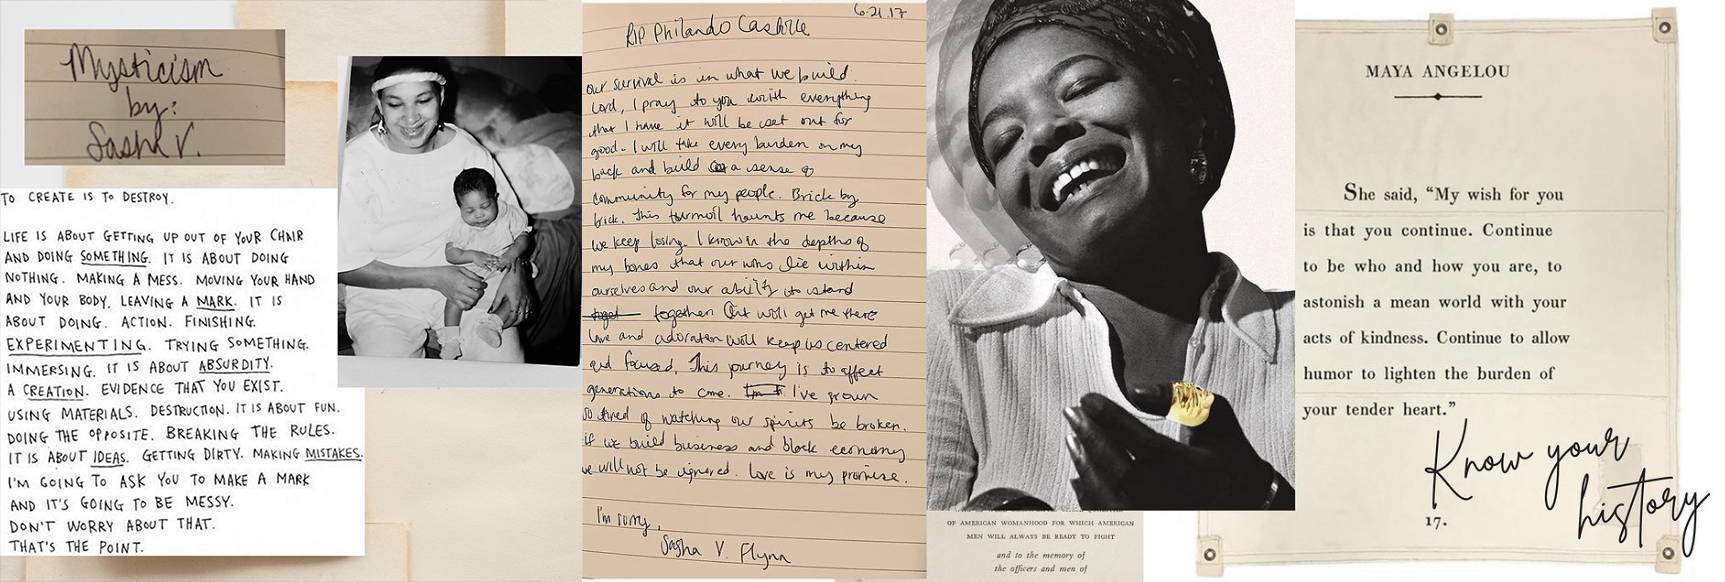 Mysticism
by:
Sasha V.
TO CREATE IS TO DESTROY.
LIFE IS ABOUT GETTING UP OUT OF YOUR CHAIR
AND DOING SOMETHING. IT IS ABOUT DOING
NOTHING. MAKING A MESS. MOVING YOUR HAND
AND YOUR BODY. LEAVING A MARK. IT IS
ABOUT DOING. ACTION. FINISHING.
EXPERIMENTING. TRYING SOMETHING.
IMMERSING. IT IS ABOUT ABSURDITY.
A CREATION. EVIDENCE THAT YOU EXIST.
USING MATERIALS. DESTRUCTION. IT IS ABOUT FUN.
DOING THE OPPOSITE. BREAKING THE RULES.
IT IS ABOUT IDEAS. GETTING DIRTY. MAKING MISTAKES.
I'M GOING TO ASK YOU TO MAKE A MARK
AND IT'S GOING TO BE MESSY.
DON'T WORRY ABOUT THAT.
THAT'S THE POINT.
6.21.17
RIP Philando Castile
our survival is in what we build.
Lord, I pray to you with everything
that I have it will be set out for
good. I will take every burden on my
back and build a sense of
community for my people. Brick by
brick. this turmoil haunts me because
we keep losing. I know in the depths of
my bones that our wins lie within
ourselves and our ability to stand
together. Grit will get me there
love and adoration will keep us centered
and focused. This journey is to affect
generations to come. I've grown
so tired of watching our spirits be broken.
if we build business and black economy
we will not be ignored. Love is my promise.
I'm sorry,
Sasha V. Flynn
OF AMERICAN WOMANHOOD FOR WHICH AMERICAN
MEN WILL ALWAYS BE READY TO FIGHT
and to the memory of
the officers and men of
MAYA ANGELOU
She said, “My wish for you
is that you continue. Continue
to be who and how you are, to
astonish a mean world with your
acts of kindness. Continue to allow
humor to lighten the burden of
your tender heart.”
17.
Know your
history